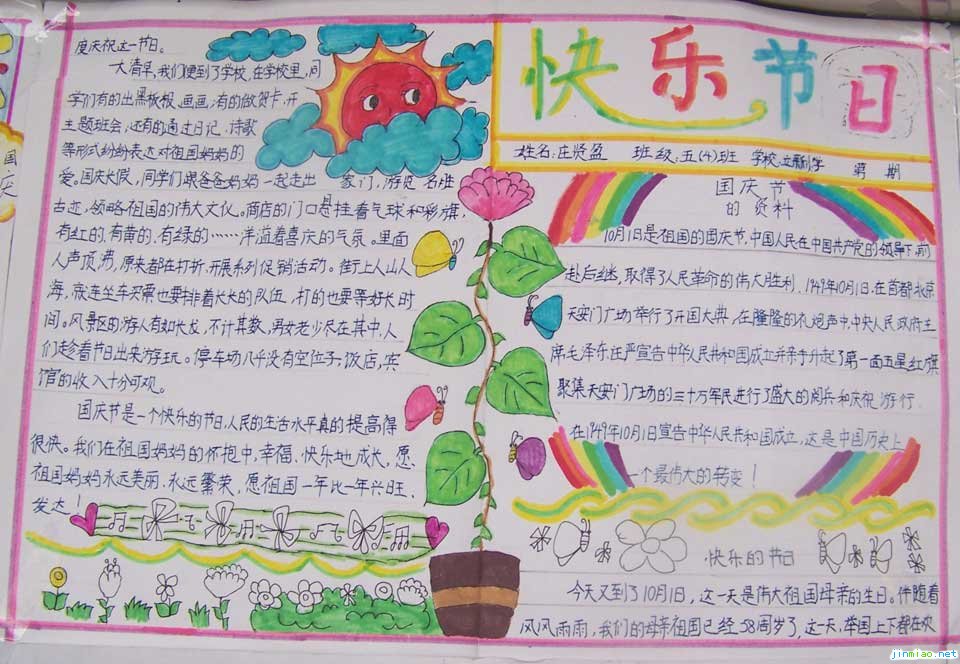 快乐节日
姓名:庄贤盈 班级:五(4)班 学校: 第 期
国庆节
的资料
10月1日是祖国的国庆节,中国人民在中国共产党的领导下,前
赴后继,取得了人民革命的伟大胜利.1949年10月1日,在首都北京
天安门广场举行了开国大典,在隆隆的礼炮声中,中央人民政府主
席毛泽东庄严宣告中华人民共和国成立并亲手升起了第一面五星红旗
聚集天安门广场的三十万军民进行了盛大的阅兵和庆祝游行.
在1949年10月1日宣告中华人民共和国成立,这是中国历史上
一个最伟大的转变!
快乐的节日
今天又到了10月1日,这一天是伟大祖国母亲的生日。伴随着
风风雨雨,我们的母亲祖国已经58周岁了,这一天,举国上下都在欢
度庆祝这一节日。
大清早,我们便到了学校,在学校里,同
学们有的出黑板报、画画,有的做贺卡,开
主题班会,还有的通过日记、诗歌
等形式纷纷表达对祖国妈妈的
爱。国庆长假,同学们跟爸爸妈妈一起走出家门,游览名胜
古迹,领略祖国的伟大文化。商店的门口悬挂着气球和彩旗,
有红的,有黄的,有绿的……洋溢着喜庆的气氛。里面
人声顶沸,原来都在打折,开展系列促销活动。街上人山人
海,就连坐车买票也要排着长长的队伍,打的也要等好长时
间。风景区的游人有如长龙,不计其数,男女老少尽在其中,人
们趁着节日出来游玩。停车场几乎没有空位子,饭店,宾
馆的收入十分可观。
国庆节是一个快乐的节日,人民的生活水平真的提高得
很快。我们在祖国妈妈的怀抱中,幸福、快乐地成长,愿
祖国妈妈永远美丽、永远繁荣,愿祖国一年比一年兴旺、
发达!
国
庆
jinmiao.net